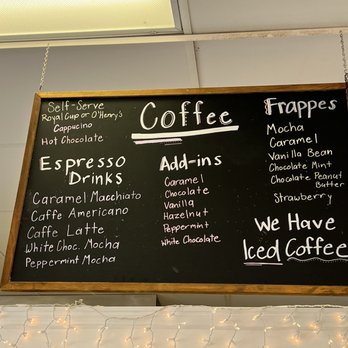 Coffee
Self-Serve
Royal Cup or O'Henry's
Cappucino
Hot Chocolate
Espresso
Drinks
Caramel Macchiato
Caffe Americano
Caffe Latte
White Choc. Mocha
Peppermint Mocha
Add-ins
Caramel
Chocolate
Vanilla
Hazelnut
Peppermint
White Chocolate
Frappes
Mocha
Caramel
Vanilla Bean
Chocolate Mint
Chocolate Peanut
Butter
Strawberry
We Have
Iced Coffee